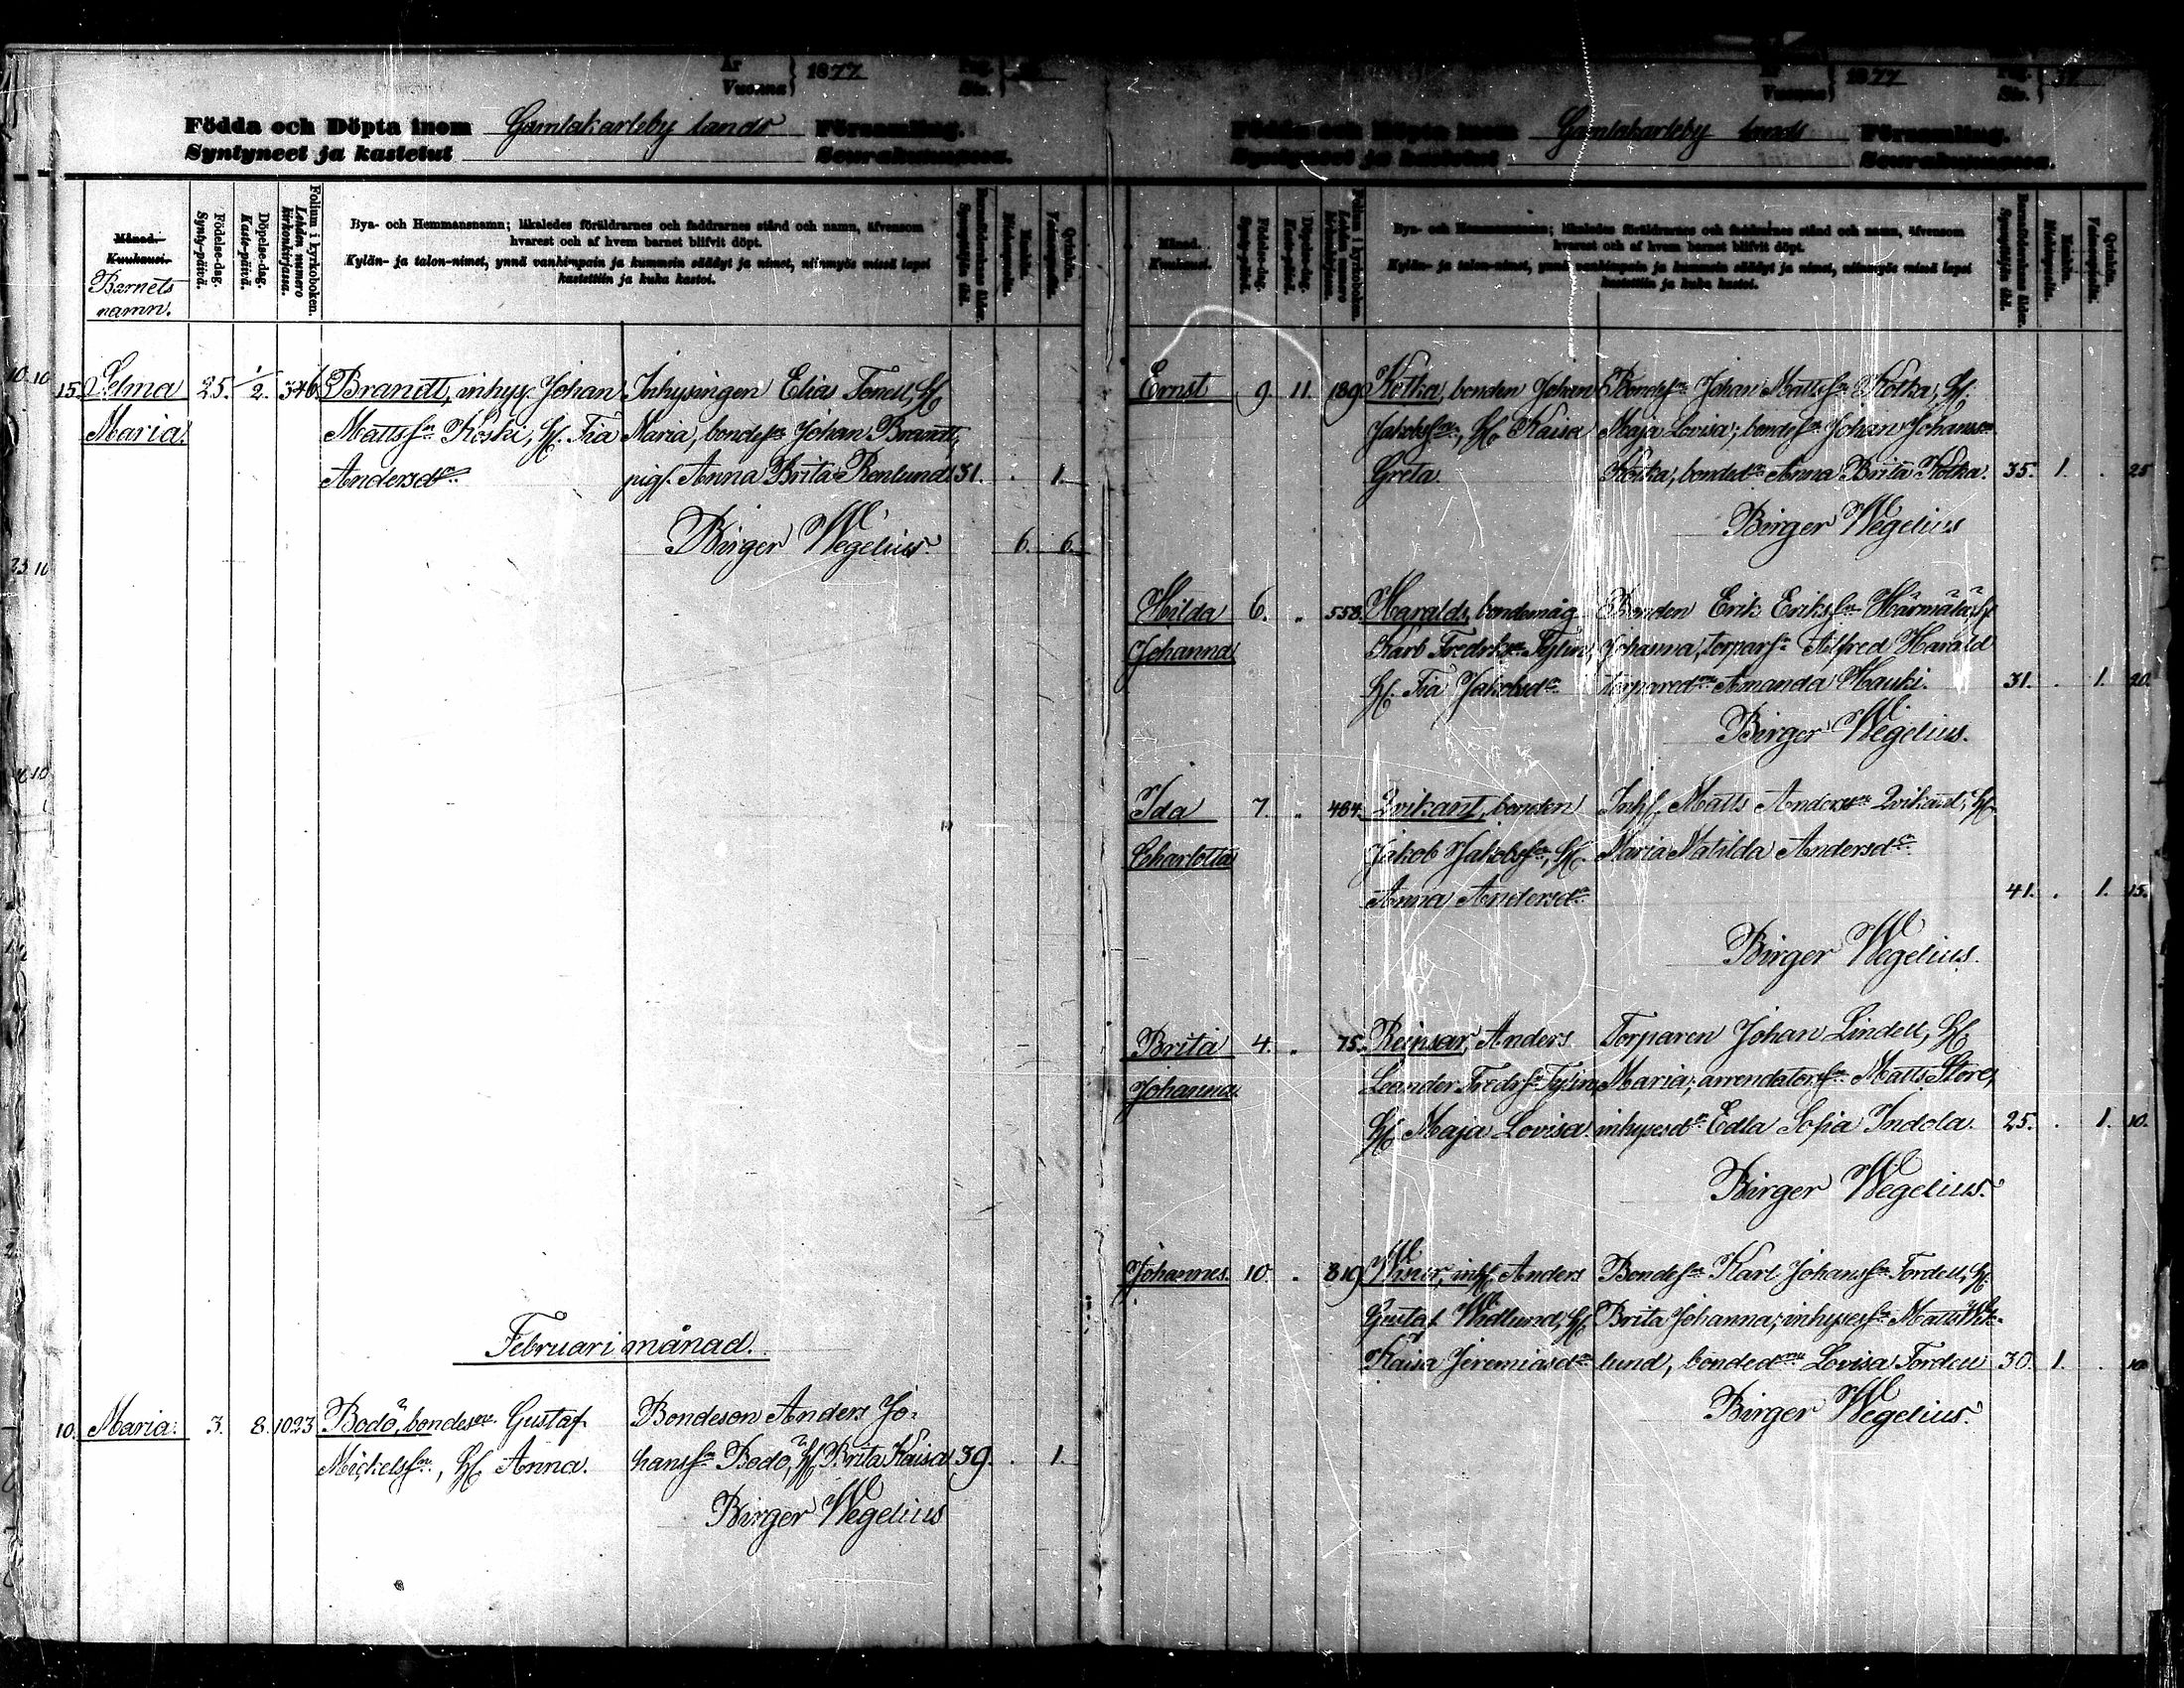 År
Vuonna } 1877
Födda och Döpta inom Gamlakarleby lands Församling.
Syntyneet ja kastetut Seurakunnassa.
Månad.
Kuukausi.
Barnets
namn.
Födelse-dag.
Synty-päivä.
Döpelse-dag.
Kaste-päivä.
Folium i kyrkoboken.
Lehden numero
kirkonkirjassa.
Bya- och Hemmansnamn; likaledes föräldrarnes och faddrarnes stånd och namn, äfvensom
hvarest och af hvem barnet blifvit döpt.
Kylän- ja talon-nimet, ynnä vanhimpain ja kummein säädyt ja nimet, niinmyös missä lapsi
kastettiin ja kuka kastoi.
Barnaföderskans ålder.
Synnyttäjän ikä.
Mankön.
Miehenpuolia.
Qvinkön.
Vaimonpuolia.
15. Selma 25. 1/2. 346. Brandt, inhys. Johan Inhysingen Elias Forell, H.
Maria. Mattsson Koski, H. Fia Maria, bondes. Johan Brandt,
Andersdr. pig. Anna Brita Renlund 31. . 1.
Birger Wegelius. 6. 6.
Februari månad.
10. Maria. 3. 8. 1023 Bodö, bondeson Gustaf Bondeson Anders Jo-
Mickelsson, H. Anna. hansson Bodö, H. Brita Kaisa 39. . 1.
Birger Wegelius
År
Vuonna } 1877
Pag.
Siv. } 37
Födda och Döpta inom Gamlakarleby lands Församling.
Syntyneet ja kastetut Seurakunnassa.
Månad.
Kuukausi.
Födelse-dag.
Synty-päivä.
Döpelse-dag.
Kaste-päivä.
Folium i kyrkoboken.
Lehden numero
kirkonkirjassa.
Bya- och Hemmansnamn; likaledes föräldrarnes och faddrarnes stånd och namn, äfvensom
hvarest och af hvem barnet blifvit döpt.
Kylän- ja talon-nimet, ynnä vanhimpain ja kummein säädyt ja nimet, niinmyös missä lapsi
kastettiin ja kuka kastoi.
Barnaföderskans ålder.
Synnyttäjän ikä.
Mankön.
Miehenpuolia.
Qvinkön.
Vaimonpuolia.
Ernst 9. 11. 189 Kotka, bonden Johan Bondeson Johan Mattsson Kotka, H.
Jakobsson, H. Kaisa Maja Lovisa; bondeson Johan Johansson
Greta. Kotka, bondedr. Anna Brita Kotka. 35. 1. . 25
Birger Wegelius
Hilda 6. „ 558. Haralds, bondemåg Bonden Erik Eriksson Härmälä, H.
Johanna Karl Fredrksson Tylin, Johanna, torpars. Alfred Harald
H. Fia Jakobsdr. torparedr. Amanda Hauki. 31. . 1. 20.
Birger Wegelius.
Ida 7. „ 484. Qvikant, bonden Inh. Matts Andersson Qvikant, H.
Charlotta Jakob Jakobsson, H. Maria Matilda Andersdr.
Anna Andersdr. 41. . 1. 15.
Birger Wegelius.
Brita 4. „ 75. Reinsar, Anders Torparen Johan Lindell, H.
Johanna. Leander Fredrs. Tylin, Maria; arrendators. Matts Store,
H. Maja Lovisa. inhysesdr. Edla Sofia Indola. 25. . 1. 10.
Birger Wegelius.
Johannes. 10. „ 819 Wisur, inh. Anders Bondeson Karl Johansson Fordell, H.
Gustaf Widlund, H. Brita Johanna; inhyses. Matts Wik-
Kaisa Jeremiasdr. lund, bondedr. Lovisa Fordell 30. 1. . 10
Birger Wegelius.